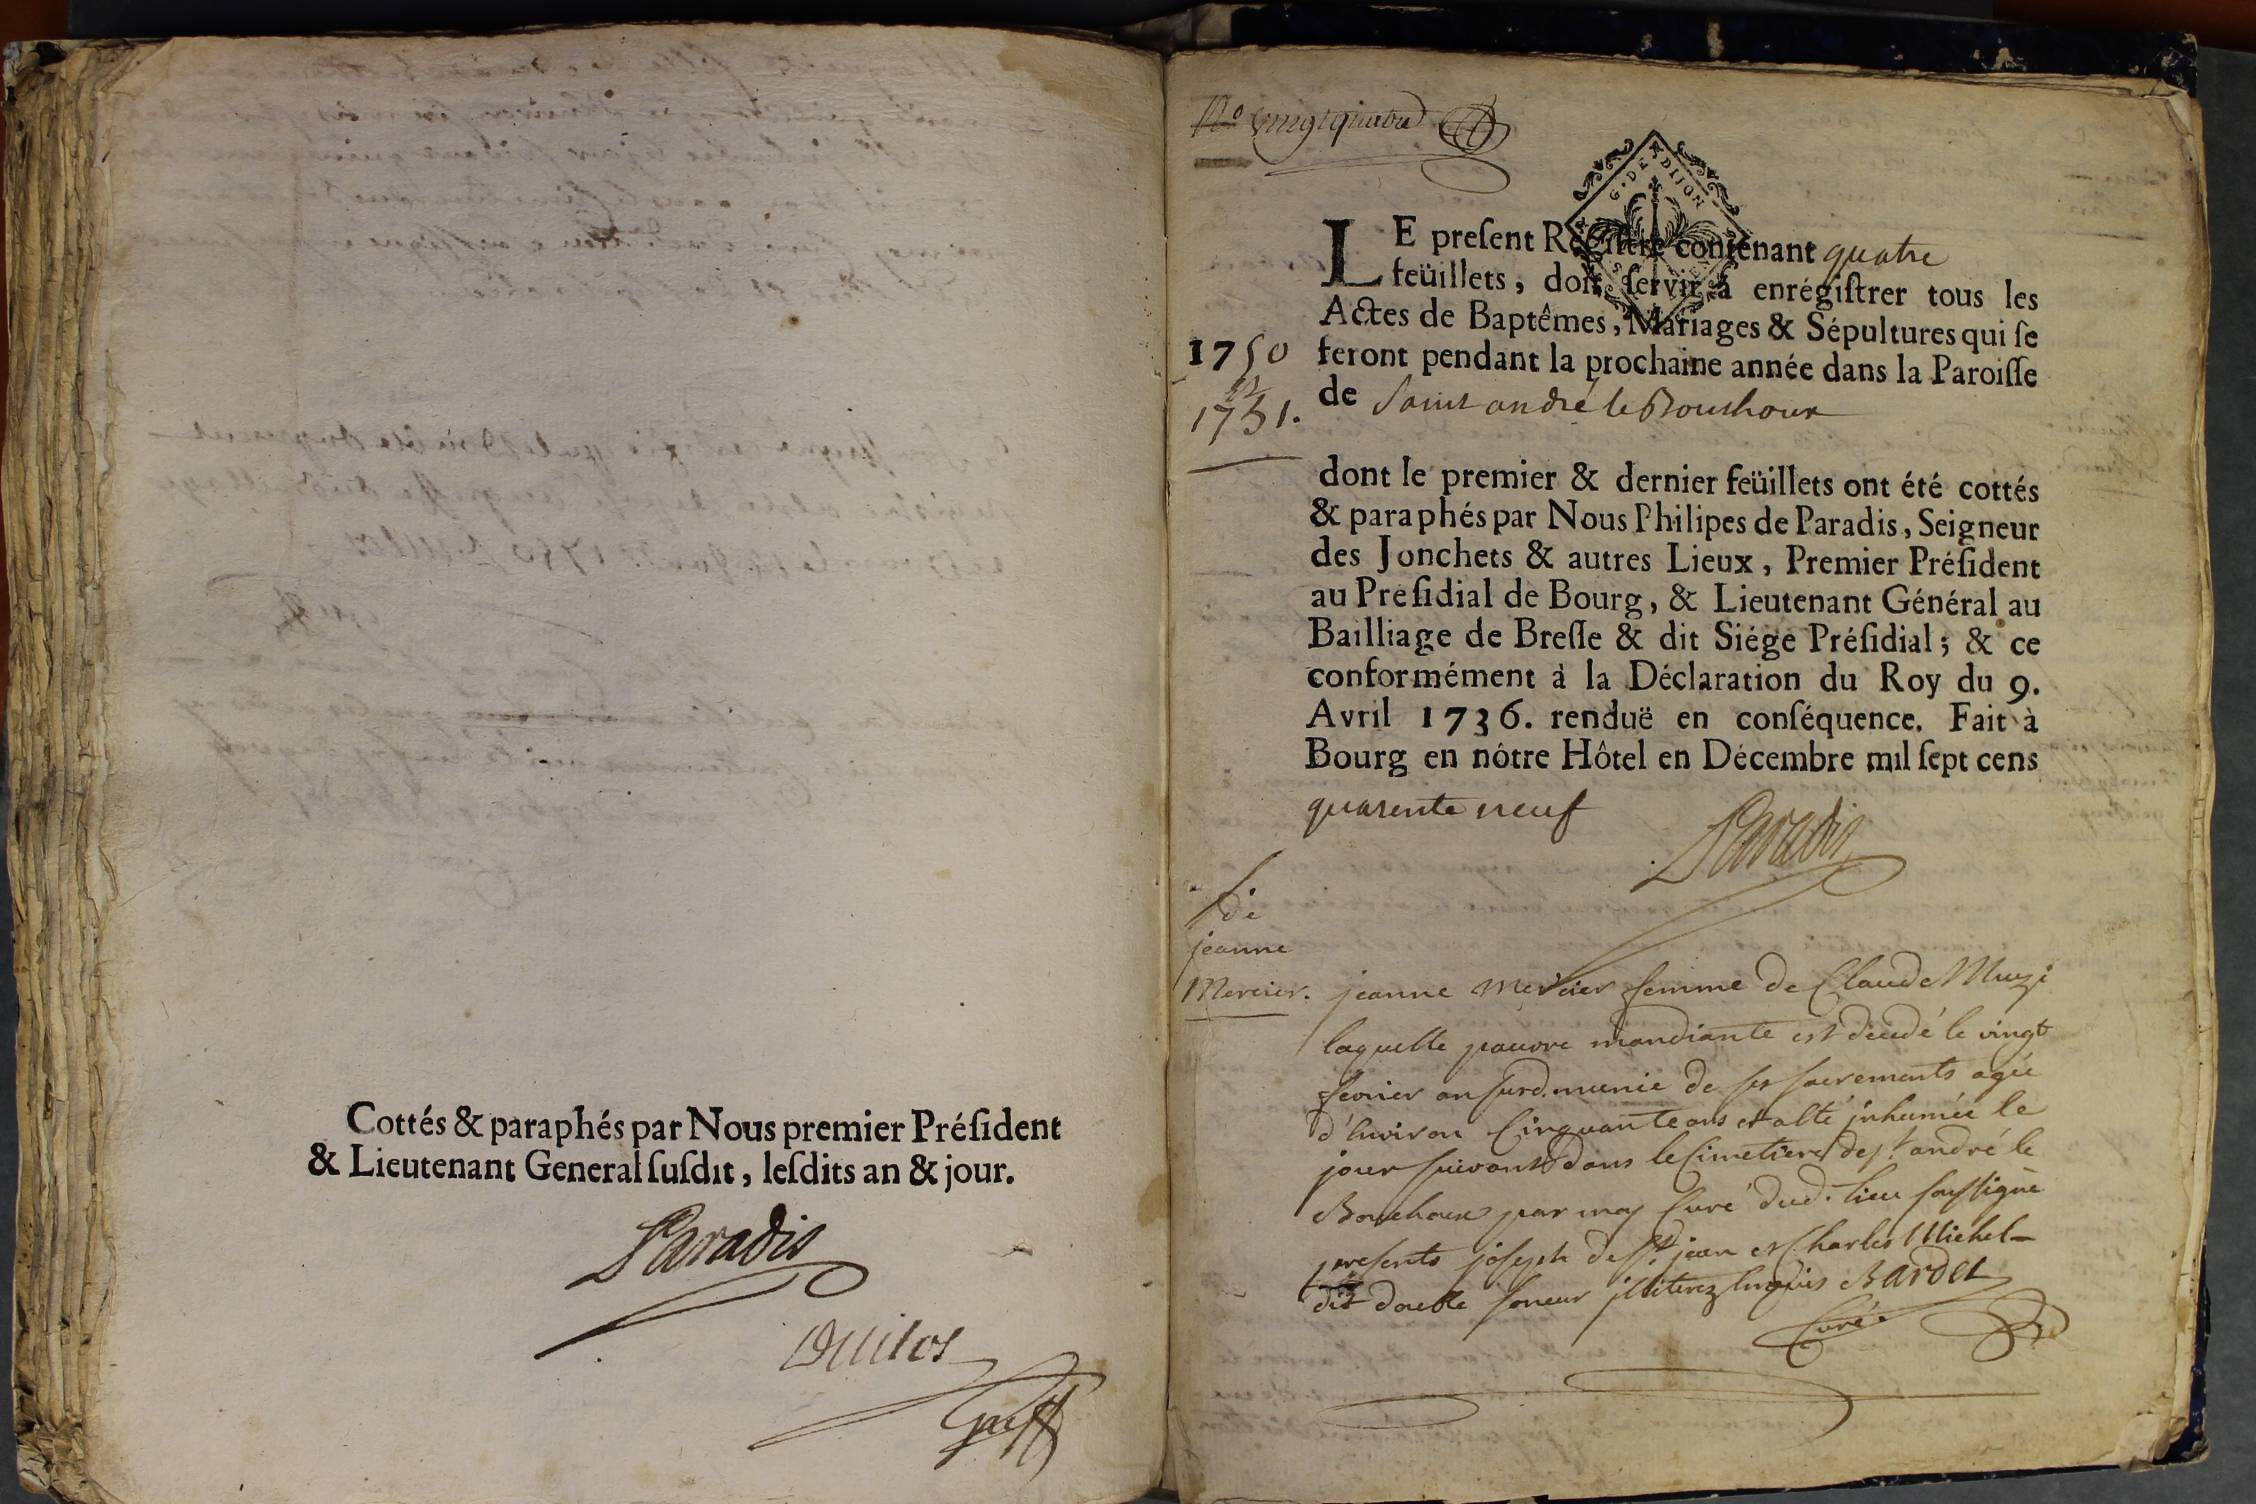 Cottés & paraphés par Nous premier Préſident
& Lieutenant General ſuſdit, leſdits an & jour.
Paradis
Greff
No vingt quatre
G. DE DIJON
LE preſent Regiſtre contenant quatre
feüillets, doit ſervir à enrégiſtrer tous les
Actes de Baptêmes, Mariages & Sépultures qui ſe
feront pendant la prochaine année dans la Paroiſſe
de Saint andré le Bouchoux
1750
et
1751.
dont le premier & dernier feüillets ont été cottés
& paraphés par Nous Philipes de Paradis, Seigneur
des Jonchets & autres Lieux, Premier Préſident
au Preſidial de Bourg, & Lieutenant Général au
Bailliage de Breſſe & dit Siége Préſidial; & ce
conformément à la Déclaration du Roy du 9.
Avril 1736. renduë en conſéquence. Fait à
Bourg en nôtre Hôtel en Décembre mil ſept cens
quarente neuf
Paradis
de
jeanne
Mercier.
jeanne Mercier femme de Claude Muzi
laquelle pauvre mandiante est decedé le vingt
fevrier an susd. munie de ses sacrements agée
d'Environ Cinquante ans et a été inhumée le
jour suivant dans le Cimetiere de st andré le
Bouchoux par moy Curé dud. lieu soussigné
presents joseph de st jean et Charles Michel
dit double soneur illiterez Enquis Bardet
Curé